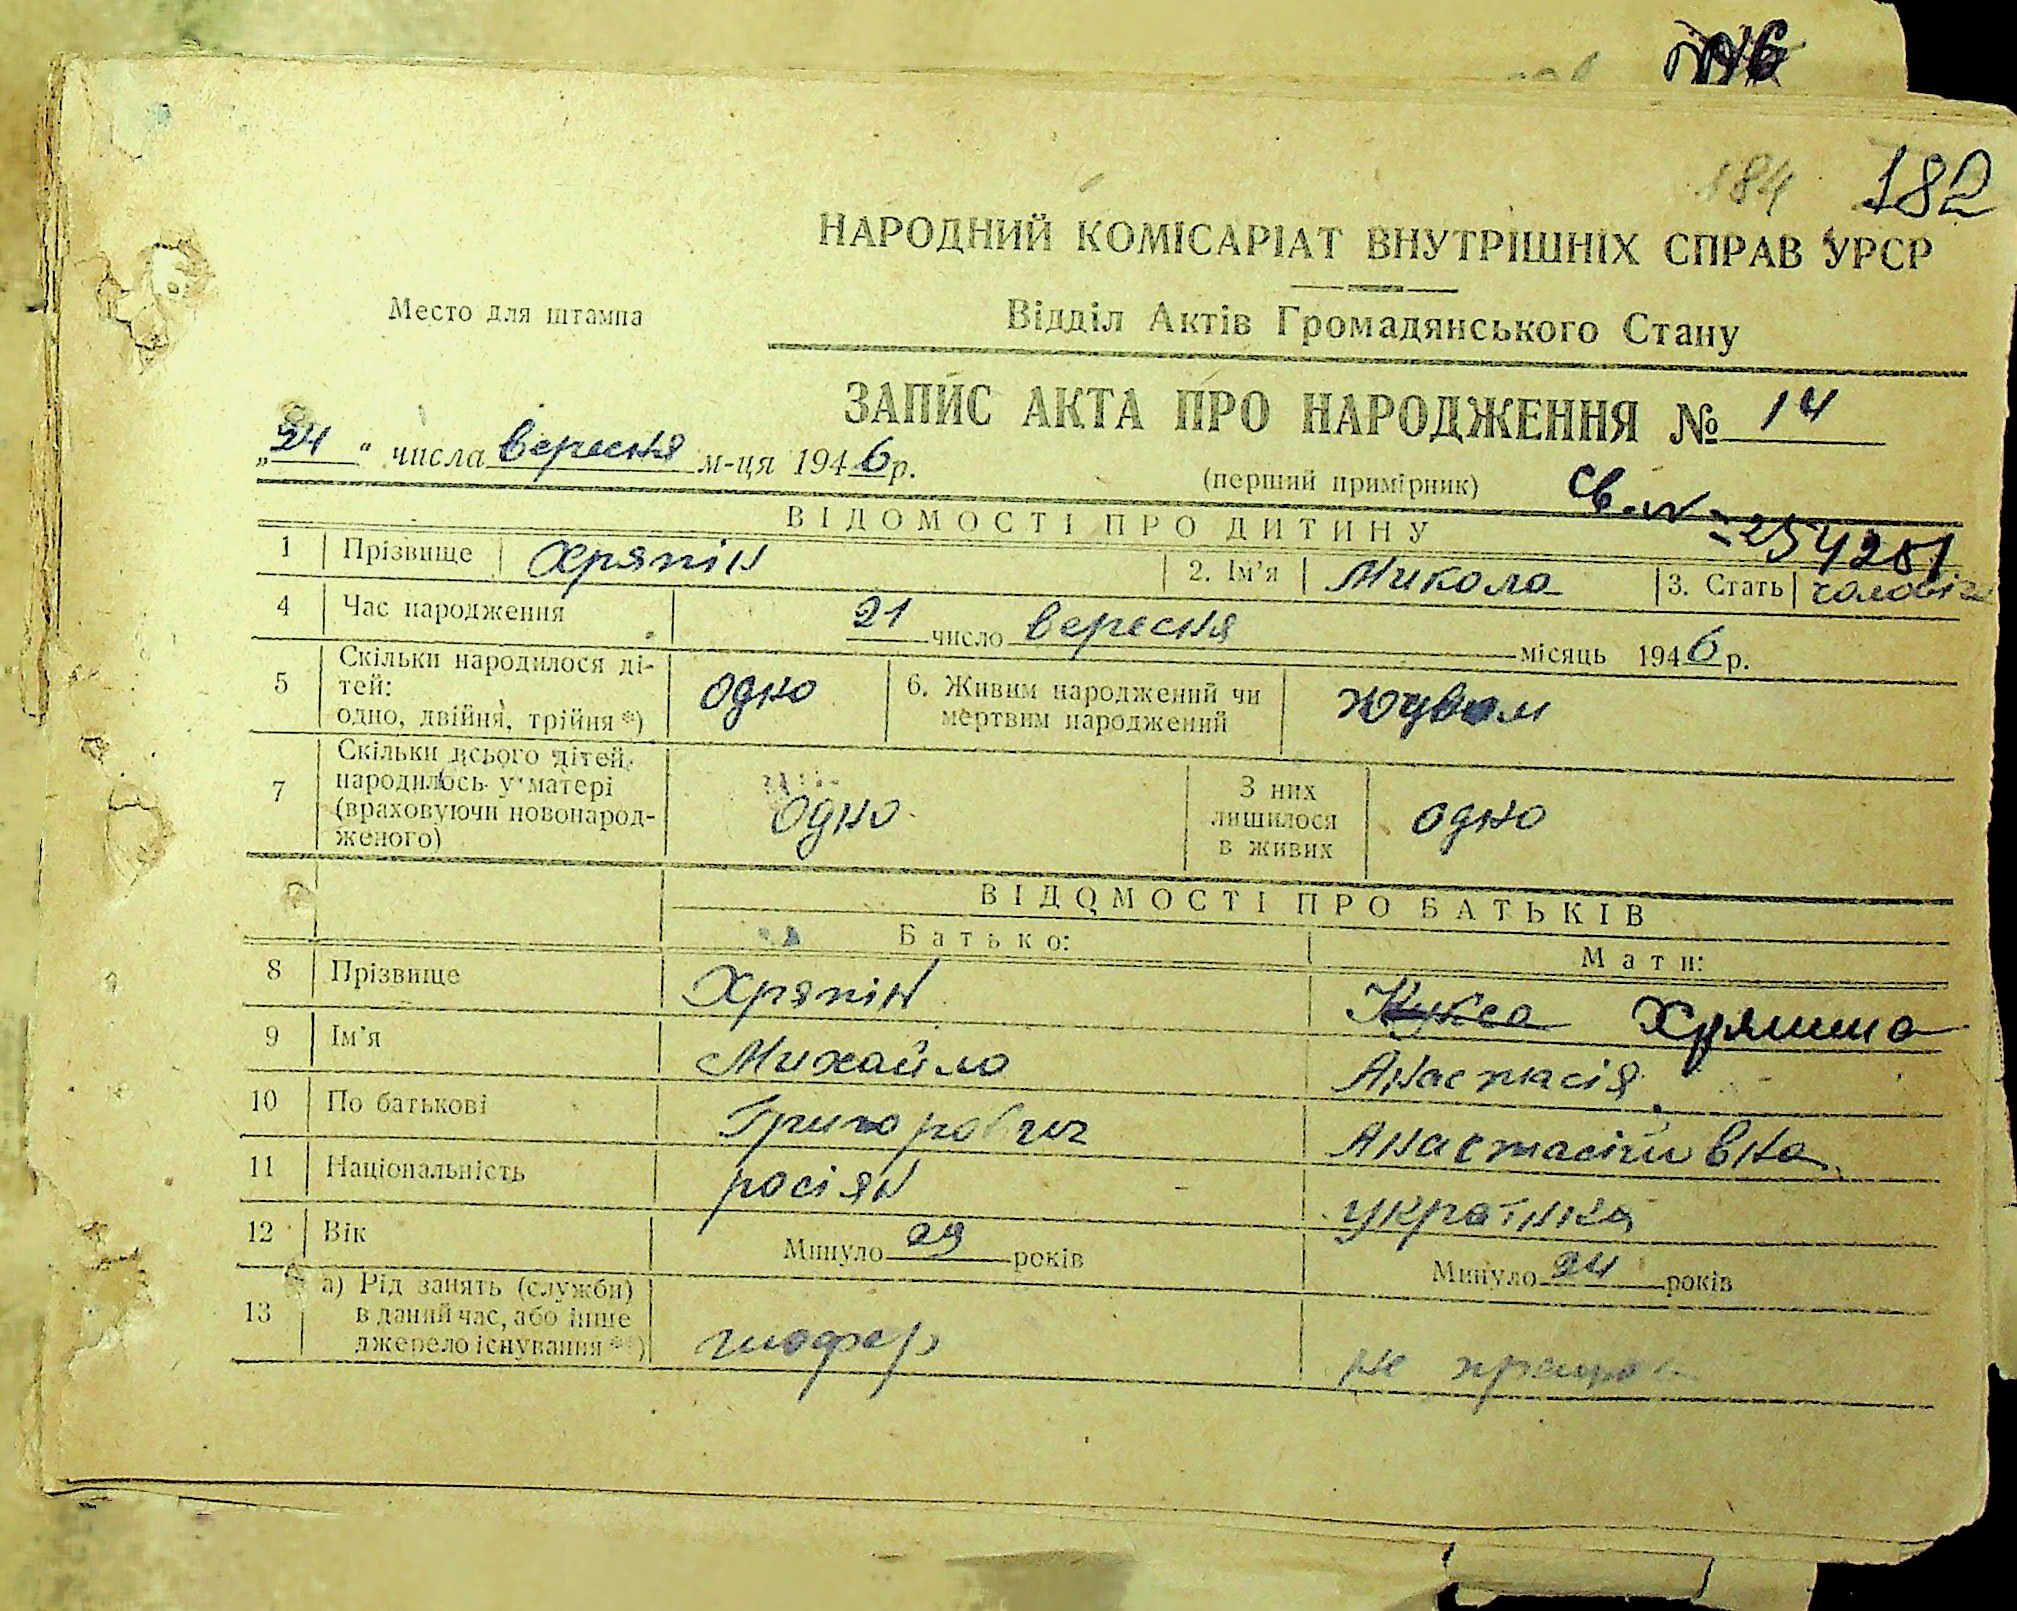 184 182
НАРОДНИЙ КОМІСАРІАТ ВНУТРІШНІХ СПРАВ УРСР
Место для штампа
Відділ Актів Громадянського Стану
ЗАПИС АКТА ПРО НАРОДЖЕННЯ № 14
„24“ числа вересня м-ця 1946 р.
(перший примірник)
Св. № 254281
ВІДОМОСТІ ПРО ДИТИНУ
1 Прізвище Хряпін 2. Ім'я Микола 3. Стать
4 Час народження 21 число вересня місяць 1946 р.
5 Скільки народилося ді-
тей:
одно, двійня, трійня *) одно 6. Живим народжений чи
мертвим народжений живом
7 Скільки всього дітей
народилось у матері
(враховуючи новонарод-
женого) одно З них
лишилося
в живих одно
ВІДОМОСТІ ПРО БАТЬКІВ
Батько: Мати:
8 Прізвище Хряпін Кукса Хряпина
9 Ім'я Михайло Анастасія
10 По батькові Григорович Анастасіївна
11 Національність росіян українка
12 Вік Минуло 29 років Минуло 24 років
13 а) Рід занять (служби)
в даний час, або інше
джерело існування **) шофер не